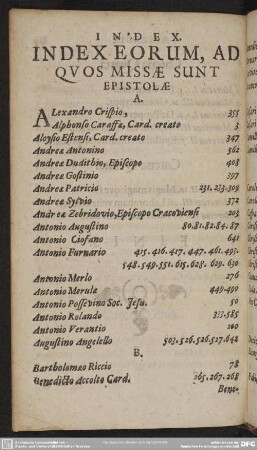 INDEX.
INDEX EORUM, AD
QVOS MISSÆ SUNT
EPISTOLÆ
A.
ALexandro Crispio, 355
Alphonso Caraffæ, Card. creato 3
Aloysio Estensi, Card. creato 347
Andreæ Antonino 562
Andreæ Dudithio, Episcopo 408
Andreæ Gostinio 397
Andreæ Patricio 231. 233. 309
Andreæ Sylvio 372
Andreæ Zebridovio, Episcopo Cracoviensi 203
Antonio Augustino 80. 81. 82. 84. 87
Antonio Ciofano 641
Antonio Furnario 415. 416. 417. 447. 461. 495.
548. 549. 551. 615. 628. 629. 630
Antonio Merlo 276
Antonio Merulæ 449. 490
Antonio Possevino Soc. Jesu. 50
Antonio Rolando 383. 585
Antonio Verantio 200
Augustino Angelello 503. 526. 526. 527. 642
B.
Bartholomæo Riccio 78
Benedicto Accolto Card. 265. 267. 268
Bene-